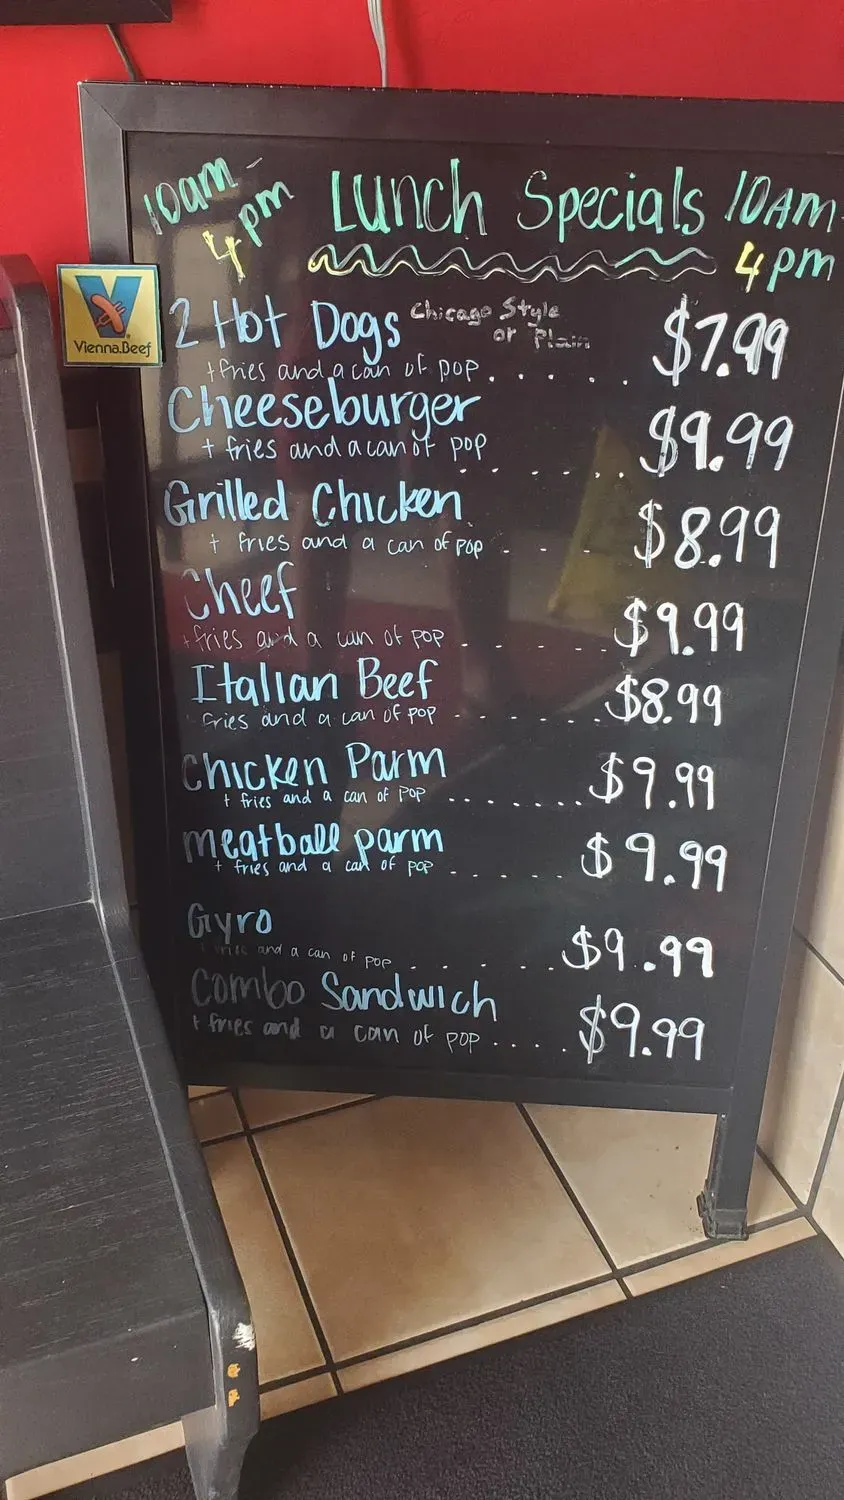 10am - 4pm
Lunch Specials
10AM - 4pm
Vienna Beef
2 Hot Dogs Chicago Style or Plain $7.99
+fries and a can of pop . . . . .
Cheeseburger $9.99
+ fries and a can of pop . . . . .
Grilled Chicken $8.99
+ fries and a can of pop . . . .
Cheef $9.99
+fries and a can of pop . . . . . . .
Italian Beef $8.99
fries and a can of pop . . . . . . .
Chicken Parm $9.99
+ fries and a can of pop . . . . . . . .
meatball parm $9.99
+ fries and a can of pop . . . . . .
Gyro $9.99
fries and a can of pop . . . . . .
Combo Sandwich $9.99
+ fries and a can of pop . . . . .